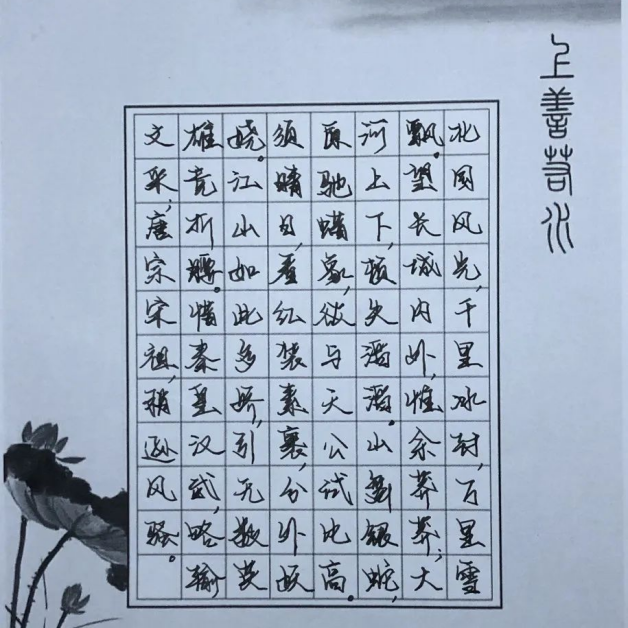 上善若水
北国风光,千里冰封,万里雪
飘。望长城内外,惟余莽莽;大
河上下,顿失滔滔。山舞银蛇,
原驰蜡象,欲与天公试比高。
须晴日,看红装素裹,分外妖
娆。江山如此多娇,引无数英
雄竞折腰。惜秦皇汉武,略输
文采,唐宗宋祖,稍逊风骚。